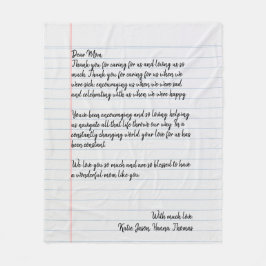 Dear Mom,
Thank you for caring for us and loving us
so much. Thank you for caring for us when we
were sick, encouraging us when we were sad
and celebrating with us when we were happy.
You've been encouraging and so loving helping
us navigate all that life throws our way. In a
constantly changing world your love for us has
been constant.
We love you so much and are so blessed to have
a wonderful mom like you.
With much love
Katie Jason Hanna Thomas